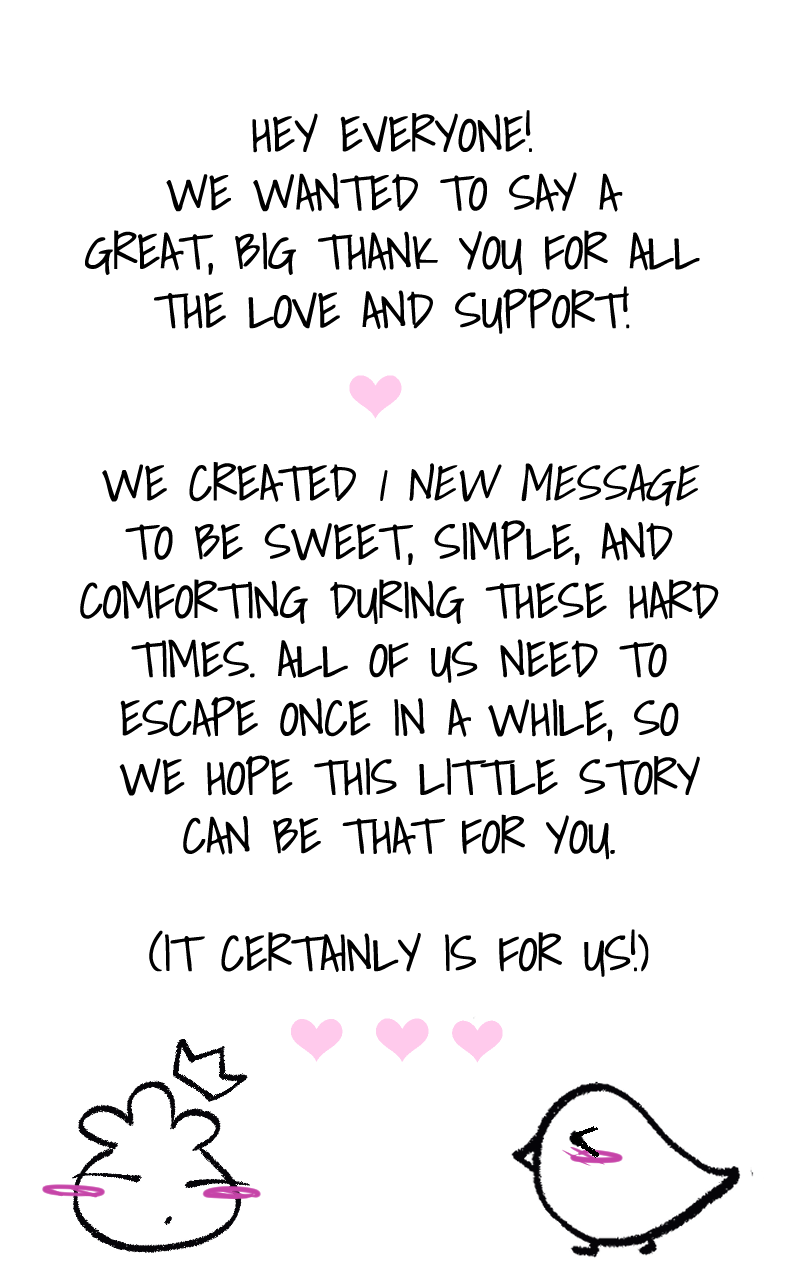 HEY EVERYONE!
WE WANTED TO SAY A
GREAT, BIG THANK YOU FOR ALL
THE LOVE AND SUPPORT!
WE CREATED 1 NEW MESSAGE
TO BE SWEET, SIMPLE, AND
COMFORTING DURING THESE HARD
TIMES. ALL OF US NEED TO
ESCAPE ONCE IN A WHILE, SO
WE HOPE THIS LITTLE STORY
CAN BE THAT FOR YOU.
(IT CERTAINLY IS FOR US!)